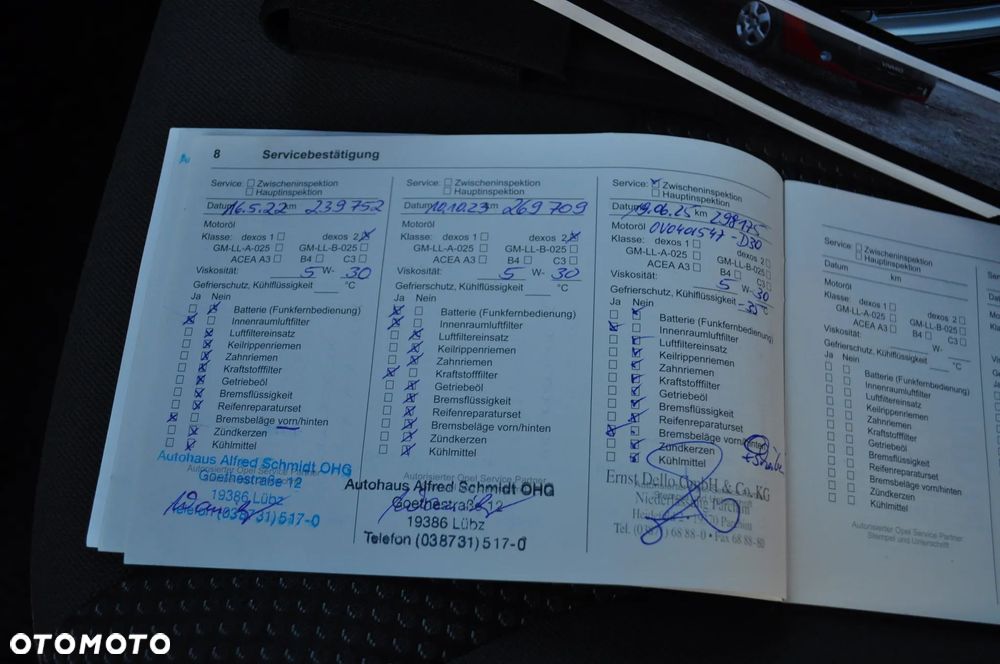 8 Servicebestätigung
Service: Zwischeninspektion
Hauptinspektion
Datum 16.5.22 km 239 752
Motoröl
Klasse: dexos 1 dexos 2
GM-LL-A-025 GM-LL-B-025
ACEA A3 B4 C3
Viskosität: 5 W- 30
Gefrierschutz, Kühlflüssigkeit °C
Ja Nein
Batterie (Funkfernbedienung)
Innenraumluftfilter
Luftfiltereinsatz
Keilrippenriemen
Zahnriemen
Kraftstofffilter
Getriebeöl
Bremsflüssigkeit
Reifenreparaturset
Bremsbeläge vorn/hinten
Zündkerzen
Kühlmittel
Autorisierter Opel Service Partner
Autohaus Alfred Schmidt OHG
Goethestraße 12
19386 Lübz
Telefon (038731) 517-0
Service: Zwischeninspektion
Hauptinspektion
Datum 10.10.23 km 269 709
Motoröl
Klasse: dexos 1 dexos 2
GM-LL-A-025 GM-LL-B-025
ACEA A3 B4 C3
Viskosität: 5 W- 30
Gefrierschutz, Kühlflüssigkeit °C
Ja Nein
Batterie (Funkfernbedienung)
Innenraumluftfilter
Luftfiltereinsatz
Keilrippenriemen
Zahnriemen
Kraftstofffilter
Getriebeöl
Bremsflüssigkeit
Reifenreparaturset
Bremsbeläge vorn/hinten
Zündkerzen
Kühlmittel
Autorisierter Opel Service Partner
Autohaus Alfred Schmidt OHG
Goethestraße 12
19386 Lübz
Telefon (038731) 517-0
Service: Zwischeninspektion
Hauptinspektion
Datum 19.06.25 km 298175
Motoröl OV0401547-D30
Klasse: dexos 1 dexos 2
GM-LL-A-025 GM-LL-B-025
ACEA A3 B4 C3
Viskosität: 5 W- 30
Gefrierschutz, Kühlflüssigkeit -35 °C
Ja Nein
Batterie (Funkfernbedienung)
Innenraumluftfilter
Luftfiltereinsatz
Keilrippenriemen
Zahnriemen
Kraftstofffilter
Getriebeöl
Bremsflüssigkeit
Reifenreparaturset
Bremsbeläge vorn/hinten
Zündkerzen
Kühlmittel
Ernst Dello GmbH & Co. KG
Niederlassung Parchim
Tel. (03871) 68 88-0 • Fax 68 88-80
Service: Zwischeninspektion
Hauptinspektion
Datum km
Motoröl
Klasse: dexos 1 dexos 2
GM-LL-A-025 GM-LL-B-025
ACEA A3 B4 C3
Viskosität: W-
Gefrierschutz, Kühlflüssigkeit °C
Ja Nein
Batterie (Funkfernbedienung)
Innenraumluftfilter
Luftfiltereinsatz
Keilrippenriemen
Zahnriemen
Kraftstofffilter
Getriebeöl
Bremsflüssigkeit
Reifenreparaturset
Bremsbeläge vorn/hinten
Zündkerzen
Kühlmittel
Autorisierter Opel Service Partner
Stempel und Unterschrift
OTOMOTO